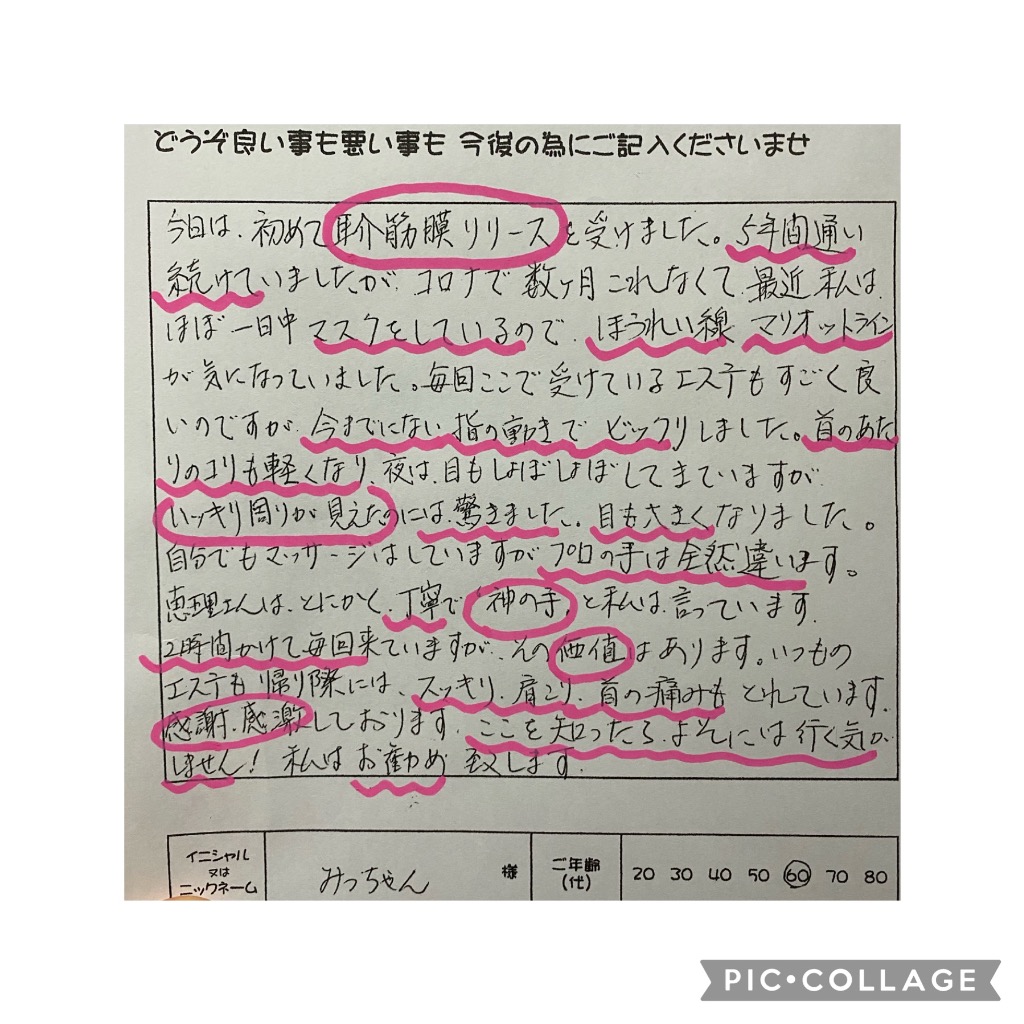 どうぞ良い事も悪い事も 今後の為にご記入くださいませ
今日は、初めて耳介筋膜リリースを受けました。5年間通い
続けていましたが、コロナで数ヶ月これなくて、最近私は、
ほぼ一日中マスクをしているので、ほうれい線 マリオットライン
が気になっていました。毎回ここで受けているエステもすごく良
いのですが、今までにない指の動きでビックリしました。首のあた
りのコリも軽くなり、夜は、目もしょぼしょぼしてきていますが
いッキリ周りが見えたのには、驚きました。目も大きくなりました。
自分でもマッサージはしていますがプロの手は全然違います。
恵理さんは、とにかく、丁寧で「神の手」と私は、言っています。
2時間かけて毎回来ていますが、その価値はあります。いつもの
エステも帰り際には、スッキリ、肩こり、首の痛みもとれています。
感謝、感激しております。ここを知ったら、よそには行く気が
しません! 私はお勧め致します。
イニシャル
又は
ニックネーム
みっちゃん 様
ご年齢
(代)
20 30 40 50 60 70 80
PIC•COLLAGE